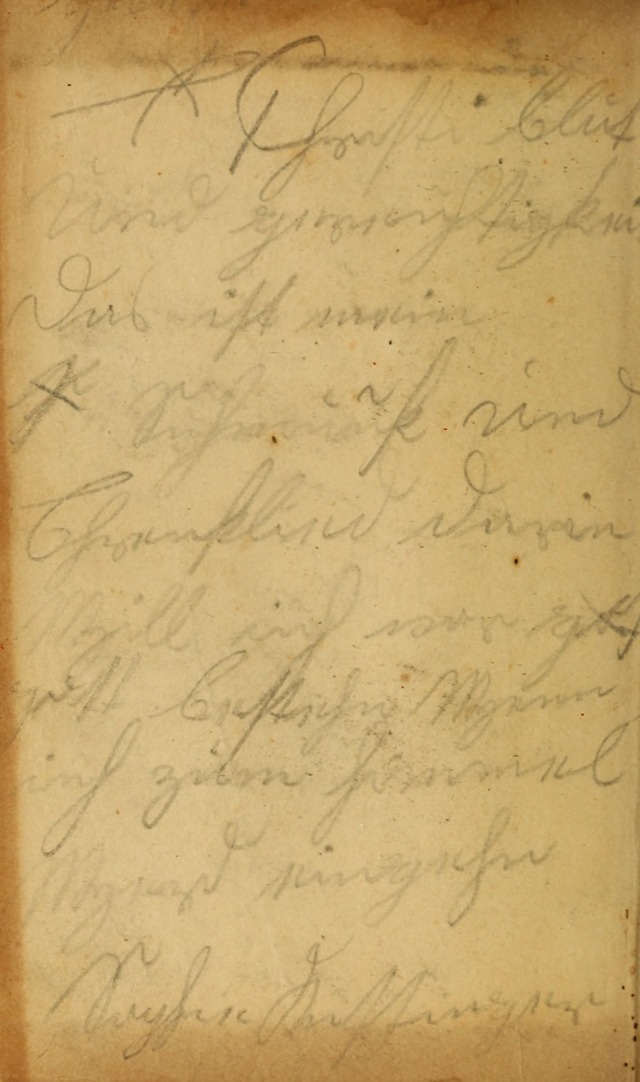 Christi Blut
Und gerechtigkei
Das ist mein
Schmuck und
Ehrenklied darin
Will ich vor
gott bestehn Wenn
ich zum himmel
Werd eingehn
Sophie